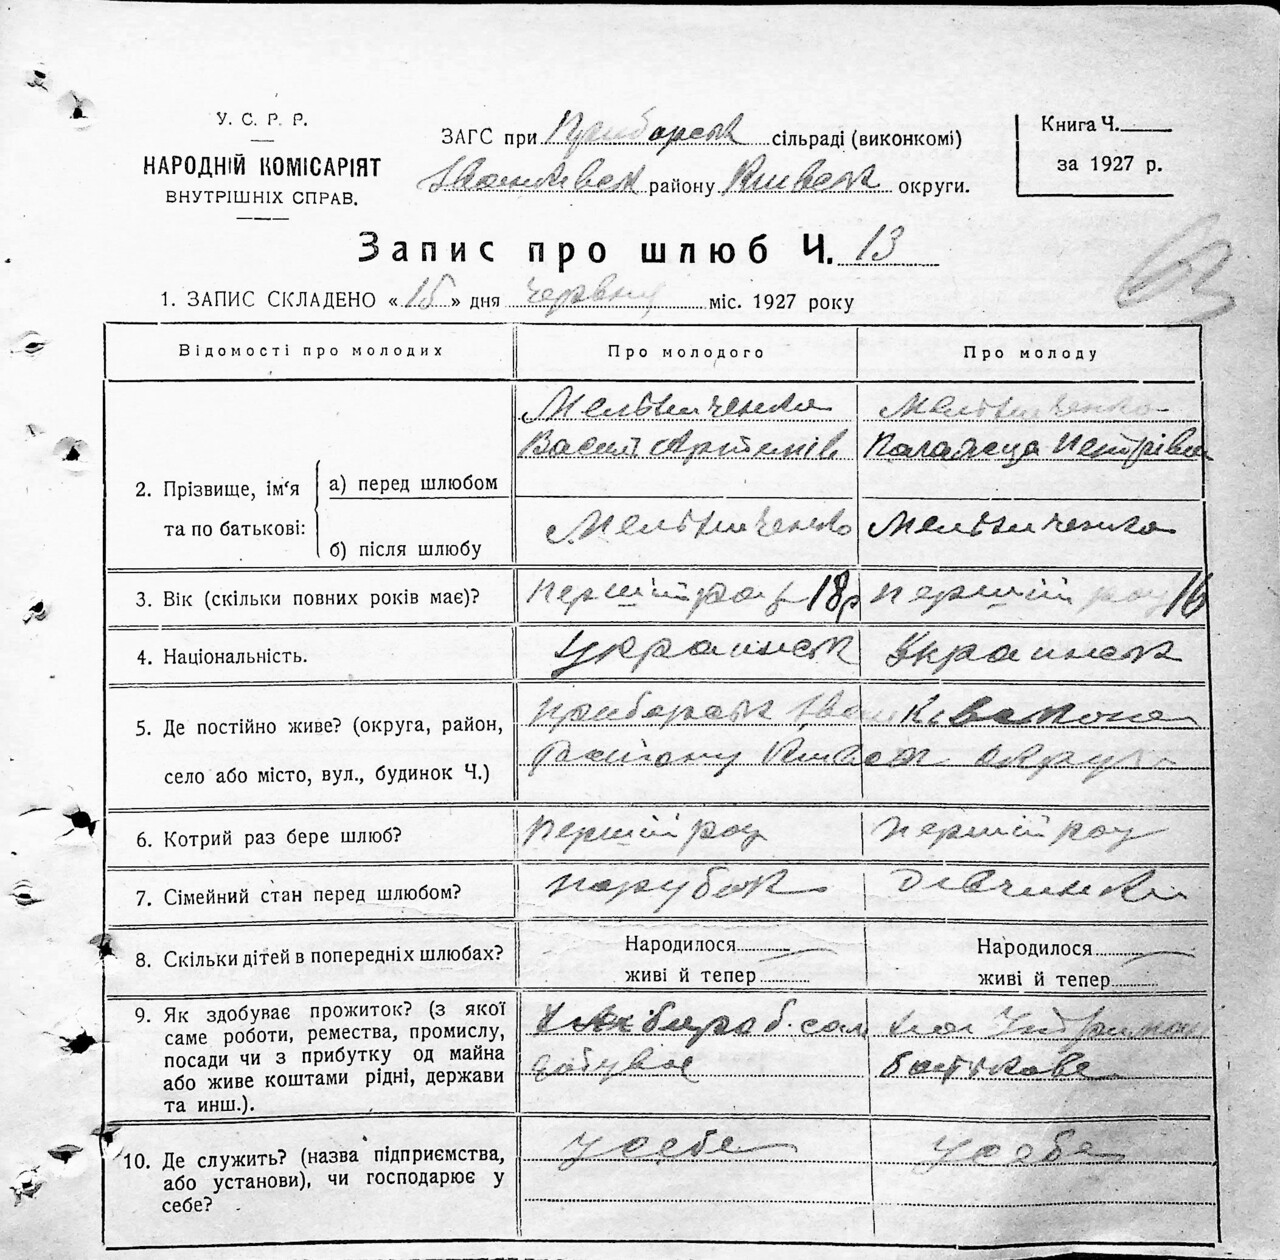 У. С. Р. Р.
НАРОДНІЙ КОМІСАРІЯТ
ВНУТРІШНІХ СПРАВ.
ЗАГС при Приборськ сільраді (виконкомі)
Іванківськ району Київськ округи.
Книга Ч.
за 1927 р.
Запис про шлюб Ч. 13
1. ЗАПИС СКЛАДЕНО «15» дня червня міс. 1927 року
Відомості про молодих Про молодого Про молоду
2. Прізвище, ім'я та по батькові:
а) перед шлюбом
Мельниченко Мельниченко
Василь Артемів Палажка Петрівна
б) після шлюбу
Мельниченко Мельниченко
3. Вік (скільки повних років має)? Перший раз 18р Перший раз 16
4. Національність. Украинськ Украинськ
5. Де постійно живе? (округа, район,
село або місто, вул., будинок Ч.)
Приборськ Іванківського
району Київськ округи
6. Котрий раз бере шлюб? Перший раз Перший раз
7. Сімейний стан перед шлюбом? парубок Дівчинка
8. Скільки дітей в попередніх шлюбах? Народилося Народилося
живі й тепер живі й тепер
9. Як здобуває прожиток? (з якої
саме роботи, ремества, промислу,
посади чи з прибутку од майна
або живе коштами рідні, держави
та инш.).
сам
добуває
на
батькове
10. Де служить? (назва підприємства,
або установи), чи господарює у
себе?
У себе У себе